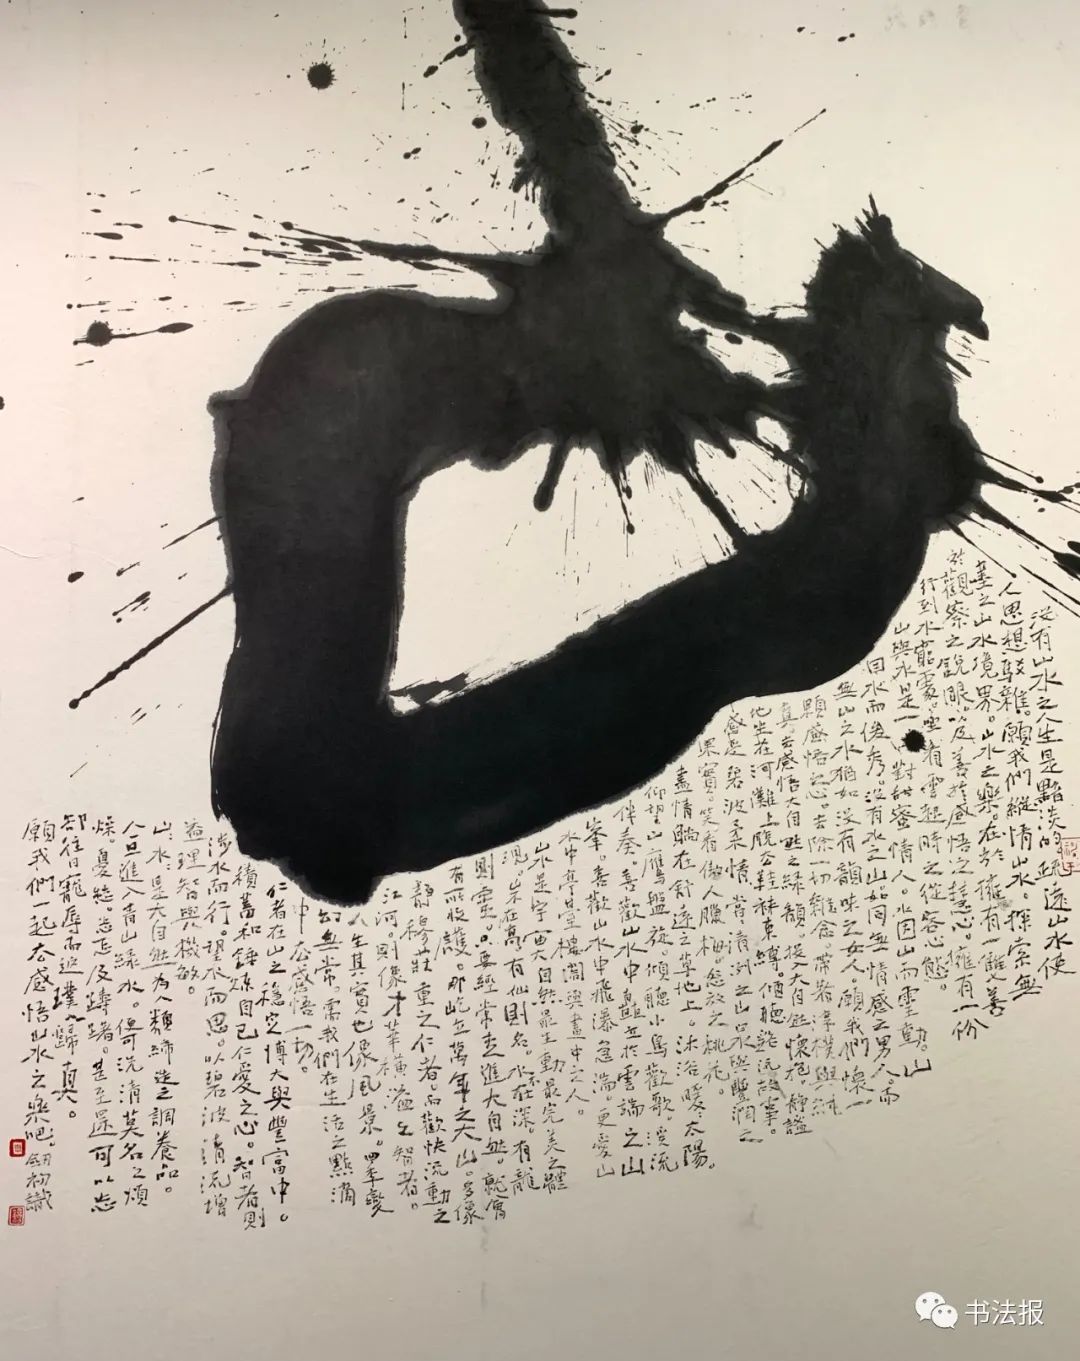 沒有山水之人生是黯淡的疏遠山水使
人思想駁雜。願我們縱情山水。探索無
盡之山水境界。山水之樂。在於擁有一雙善
於觀察之銳眼。以及善於感悟之慧心。擁有一份
行到水窮處。坐看雲起時之從容心態。
山與水是一對甜蜜情人。水因山而靈動。山
因水而俊秀。沒有水之山如同無情感之男人。而
無山之水猶如沒有韻味之女人。願我們懷一
顆感悟之心。去除一切雜念。帶著淳樸與純
真。去感悟大自然之綠韻。投入大自然懷抱。靜謐
地坐在河灘上脫去鞋襪束縛。傾聽流故事。
感受碧波柔情。嘗清冽之山泉與豐潤之
果實。笑看傲人臘梅。怒放之桃花。
盡情躺在舒遠之草地上。沐浴暖暖太陽。
仰望山鷹盤旋。傾聽小鳥歡歌。溪流
伴奏。喜歡山水中矗立於雲端之山
峯。喜歡山水中飛瀑急湍。更愛山
水中亭臺樓閣與畫中之人。
山水是宇宙大自然最生動最完美之體
現。山不在高。有仙則名。水不在深。有龍
則靈。只要經常走進大自然。就會
有所收護。那屹立萬年之大山。多像
靜穆莊重之仁者。而歡快流動之
江河。則像才華橫溢之智者。
人生其實也像風景。四季變
幻無常。需我們在生活之點滴
中去感悟一切。
仁者在山之穩定博大與豐富中。
積蓄和錘煉自己仁愛之心。智者則
涉水而行。望水而思。以碧波清流增
益理智與機敏。
山水是大自然為人類締造之調養品。
人一旦進入青山綠水。便可洗清莫名之煩
燥。憂愁。怨及躊躇。甚至還可以忘
卻往日寵辱而返璞歸真。
願我們一起去感悟山水之樂吧。初識
书法报